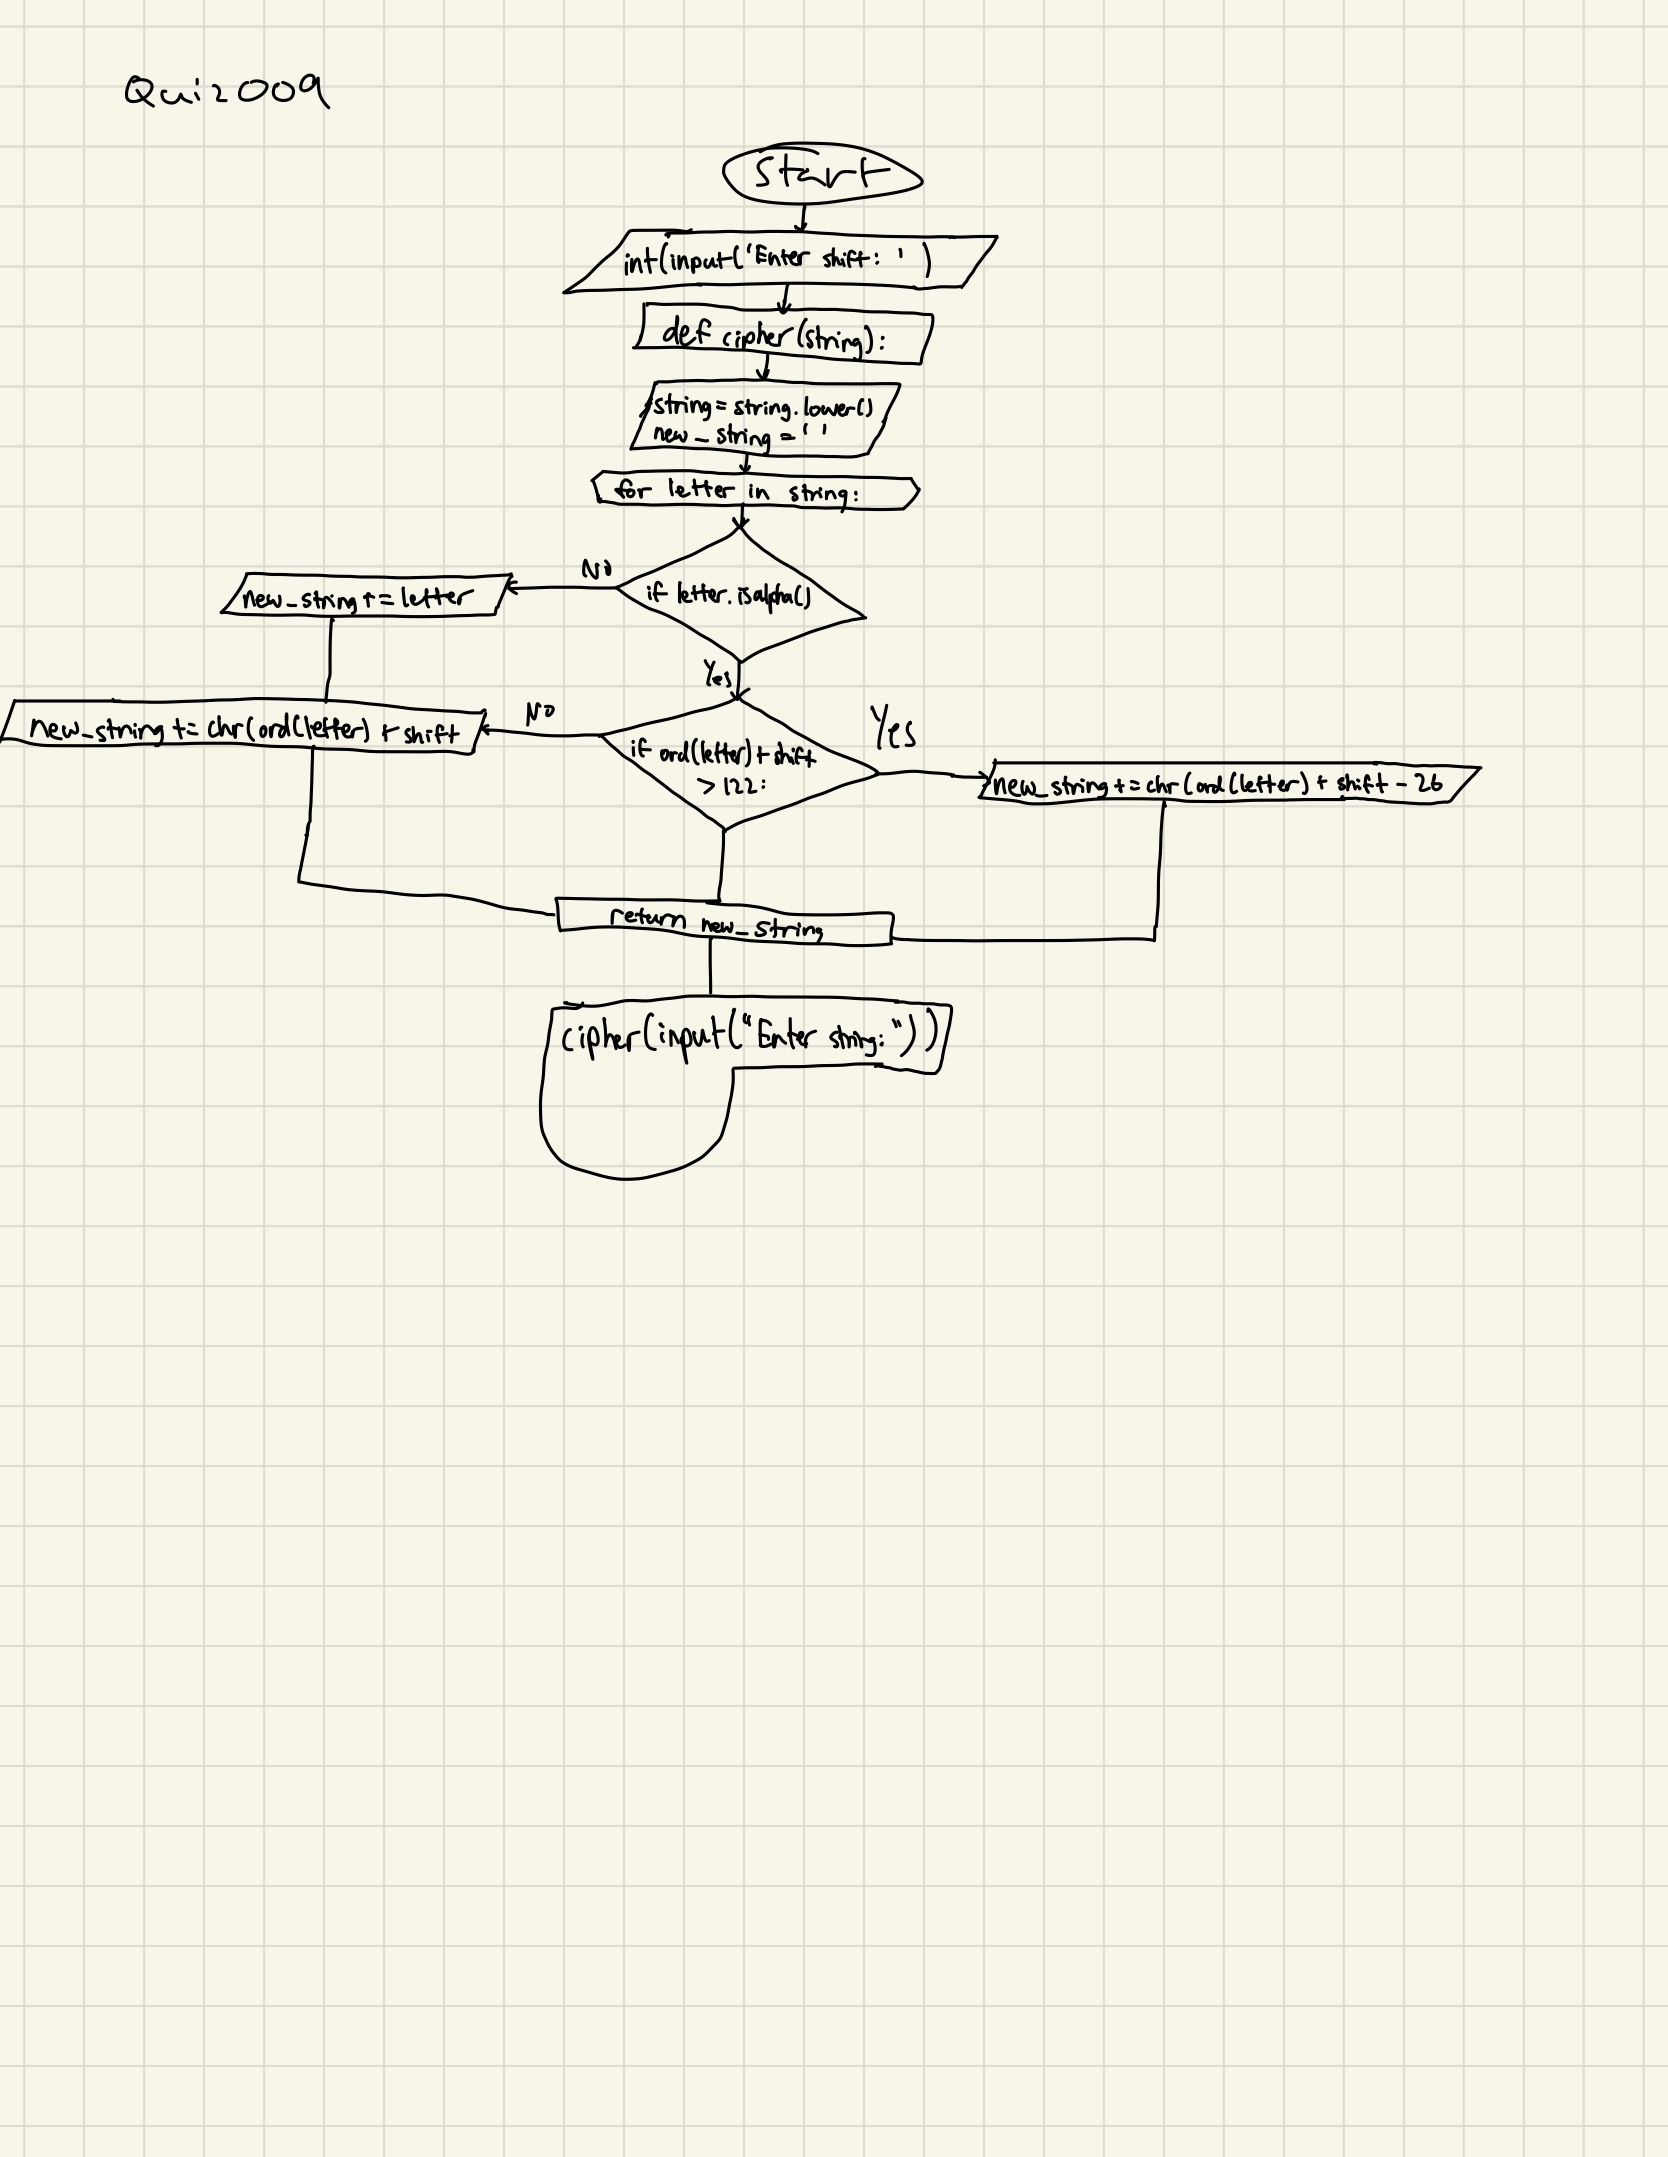 Quiz009
Start
int(input('Enter shift: ')
def cipher(string):
string = string.lower()
new_string = ' '
for letter in string:
if letter.isalpha()
No
new_string += letter
Yes
if ord(letter) + shift
> 122:
No
new_string += chr(ord(letter) + shift
Yes
new_string += chr(ord(letter) + shift - 26
return new_string
cipher(input("Enter string:"))